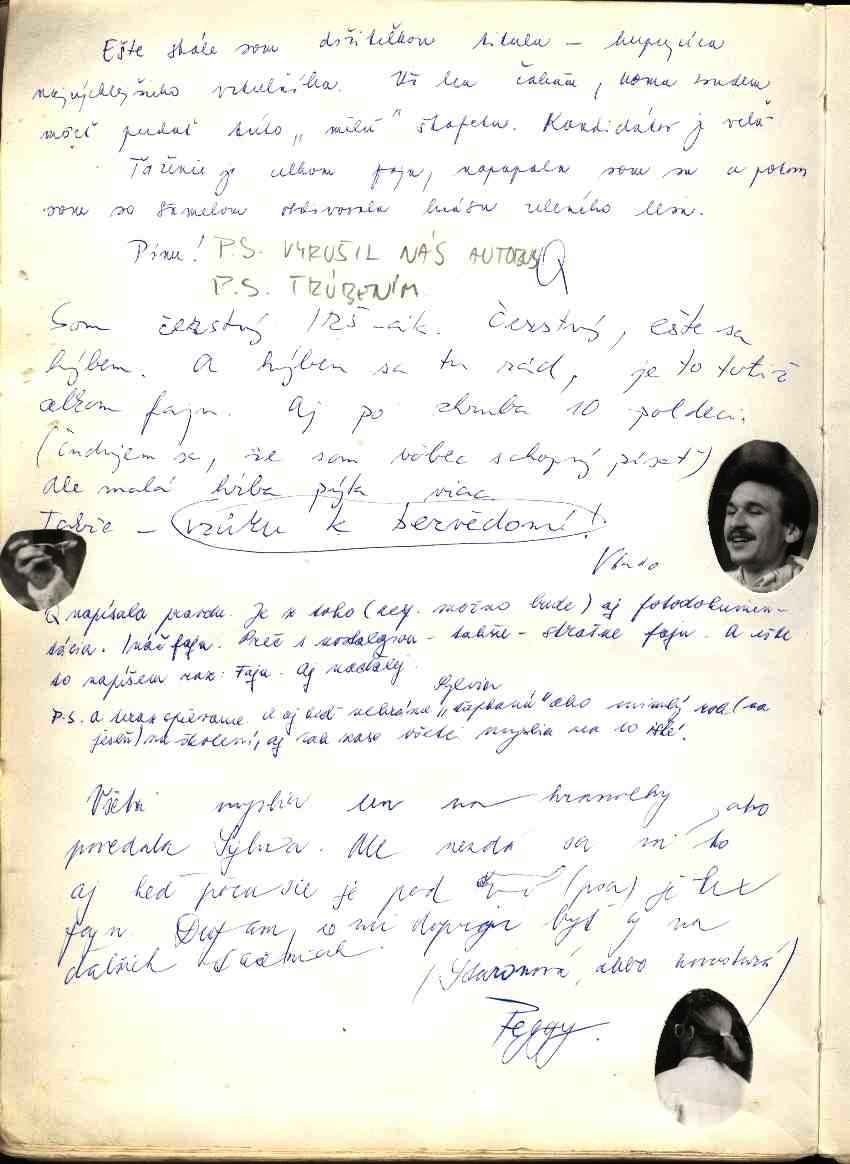 Ešte stále som držiteľkou titulu –
najrýchlejšieho Už len čakám, komu budem
môcť podať túto „milú" štafetu. Kandidátov je veľa
Ťaženie je celkom fajn, napapala som sa a potom
som so Šamelom krásu zeleného lesa.
Písu! P.S. VYRUŠIL NÁS AUTOBUS Q
P.S. TRÚBENÍM
Som čerstvý IRŠ-ák. Čerstvý, ešte sa
hýbem. A hýbem sa tu rád, je to totiž
celkom fajn. Aj po zhruba 10 poldeci.
(Čudujem se, že som vôbec schopný písať)
Ale malá hŕba pýta viac.
Takže – vzhůru k bezvědomí!
Vlado
Q napísala pravdu. Je z toho (resp. možno bude) aj fotodokumen-
tácia. Ináč fajn. Preč s nostalgiou – takže – strašne fajn. A ešte
to napíšem raz: Fajn. Aj naďalej.
Sylvia
P.S. a teraz spievame aj keď nehráme „ alebo rod (na
jeseň) na školení, aj tak zase všetci myslia len na to isté!
Všetci myslia len na hranolky, ako
povedala Sylvia. Ale nezdá sa mi to
aj keď počasie je pod (psa) je tex
fajn. Dúfam, čo mi dopraje byť aj na
ďalších
(Staronová, alebo novostará)
Peggy.